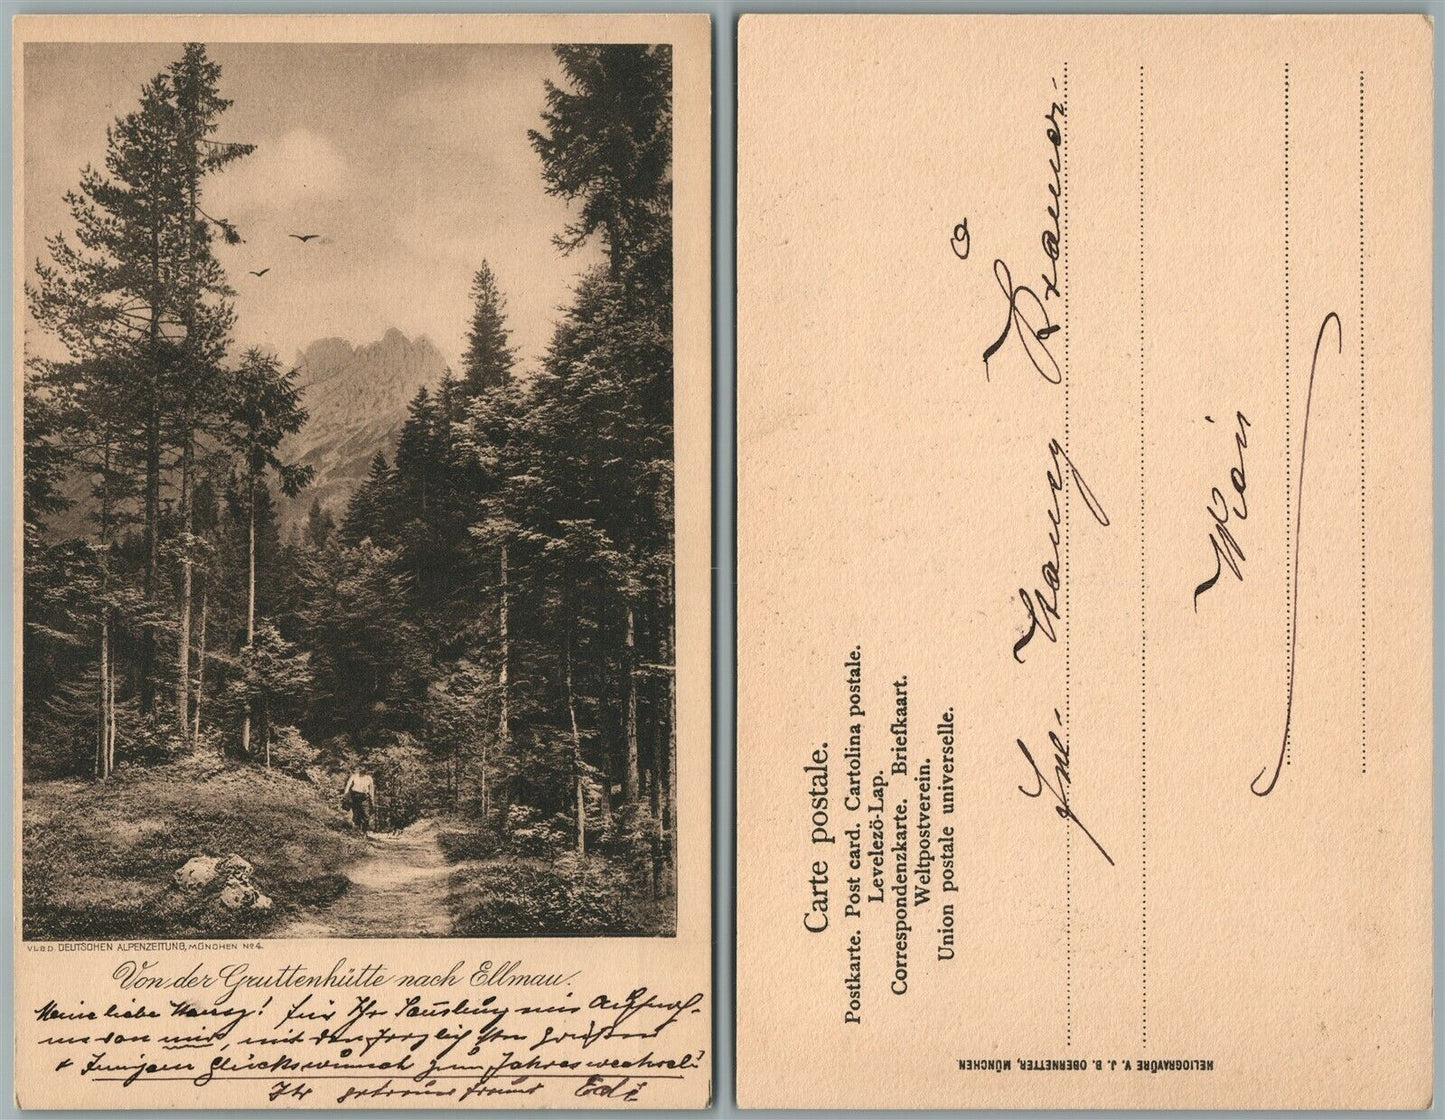 VLG D. DEUTSCHEN ALPENZEITUNG, MÜNCHEN No 4.
Von der Gruttenhütte nach Ellmau.
Meine liebe Hansy! für Ihr
von mir, mit den herzlichsten Grüßen
+ innigen Glückwunsch zum Jahreswechsel!
Ihr getreuer Freund Edi
Carte postale.
Postkarte. Post card. Cartolina postale.
Levelezö-Lap.
Correspondenzkarte. Briefkaart.
Weltpostverein.
Union postale universelle.
Hansy Krämer
HELIOGRAVÜRE V. J. B. OBERNETTER, MÜNCHEN